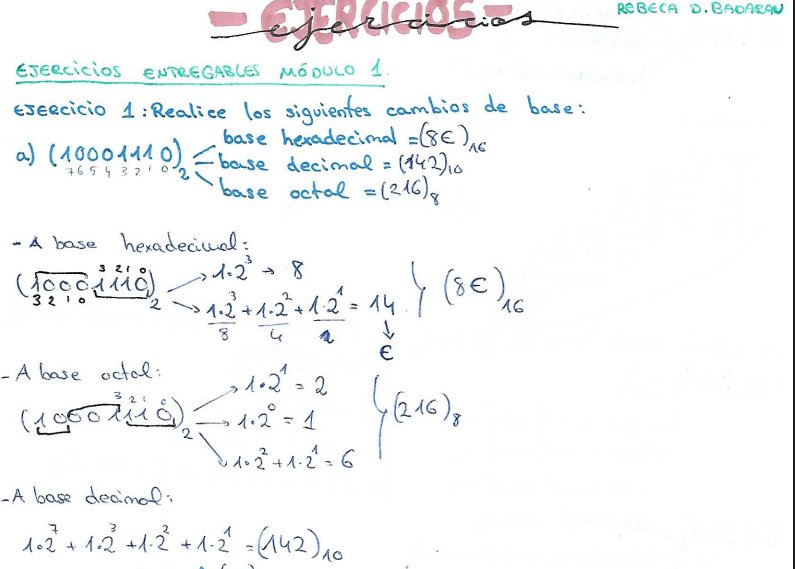 EJERCICIOS
ejercicios
REBECA D. BADARAU
EJERCICIOS ENTREGABLES MÓDULO 1.
EJERCICIO 1: Realice los siguientes cambios de base:
a) (10001110)₂ base hexadecimal = (8E)₁₆
7 6 5 4 3 2 1 0
base decimal = (142)₁₀
base octal = (216)₈
- A base hexadecimal:
3 2 1 0
(10001110)₂ → 1·2³ → 8
3 2 1 0
→ 1·2³ + 1·2² + 1·2¹ = 14 } (8E)₁₆
8 4 2 ↓
E
- A base octal:
3 2 1 0
(10001110)₂ → 1·2¹ = 2
→ 1·2⁰ = 1 } (216)₈
→ 1·2² + 1·2¹ = 6
- A base decimal:
1·2⁷ + 1·2³ + 1·2² + 1·2¹ = (142)₁₀